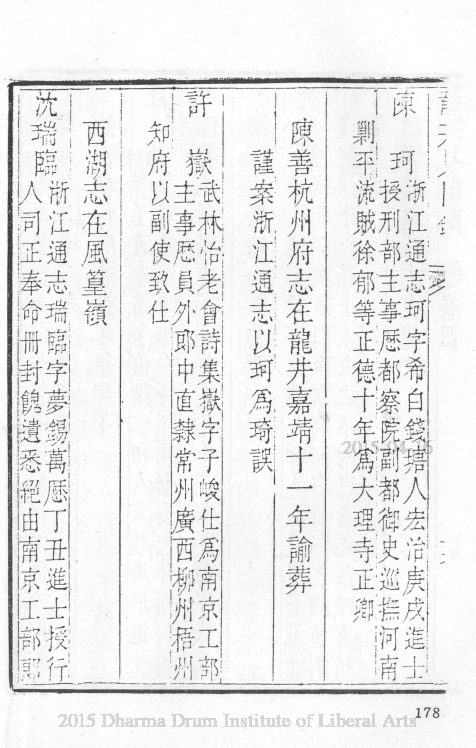 陳珂浙江通志珂字希白錢塘人宏治庚戌進士
授刑部主事歷都察院副都御史巡撫河南
剿平流賊徐郁等正德十年爲大理寺正卿
陳善杭州府志在龍井嘉靖十一年諭葬
謹案浙江通志以珂爲琦誤
許嶽武林怡老會詩集嶽字子峻仕爲南京工部
主事歷員外郎中直隸常州廣西柳州梧州
知府以副使致仕
西湖志在風篁嶺
沈瑞臨浙江通志瑞臨字夢錫萬歷丁丑進士授行
人司正奉命冊封餽遺悉絕由南京工部郎
178
2015 Dharma Drum Institute of Liberal Arts